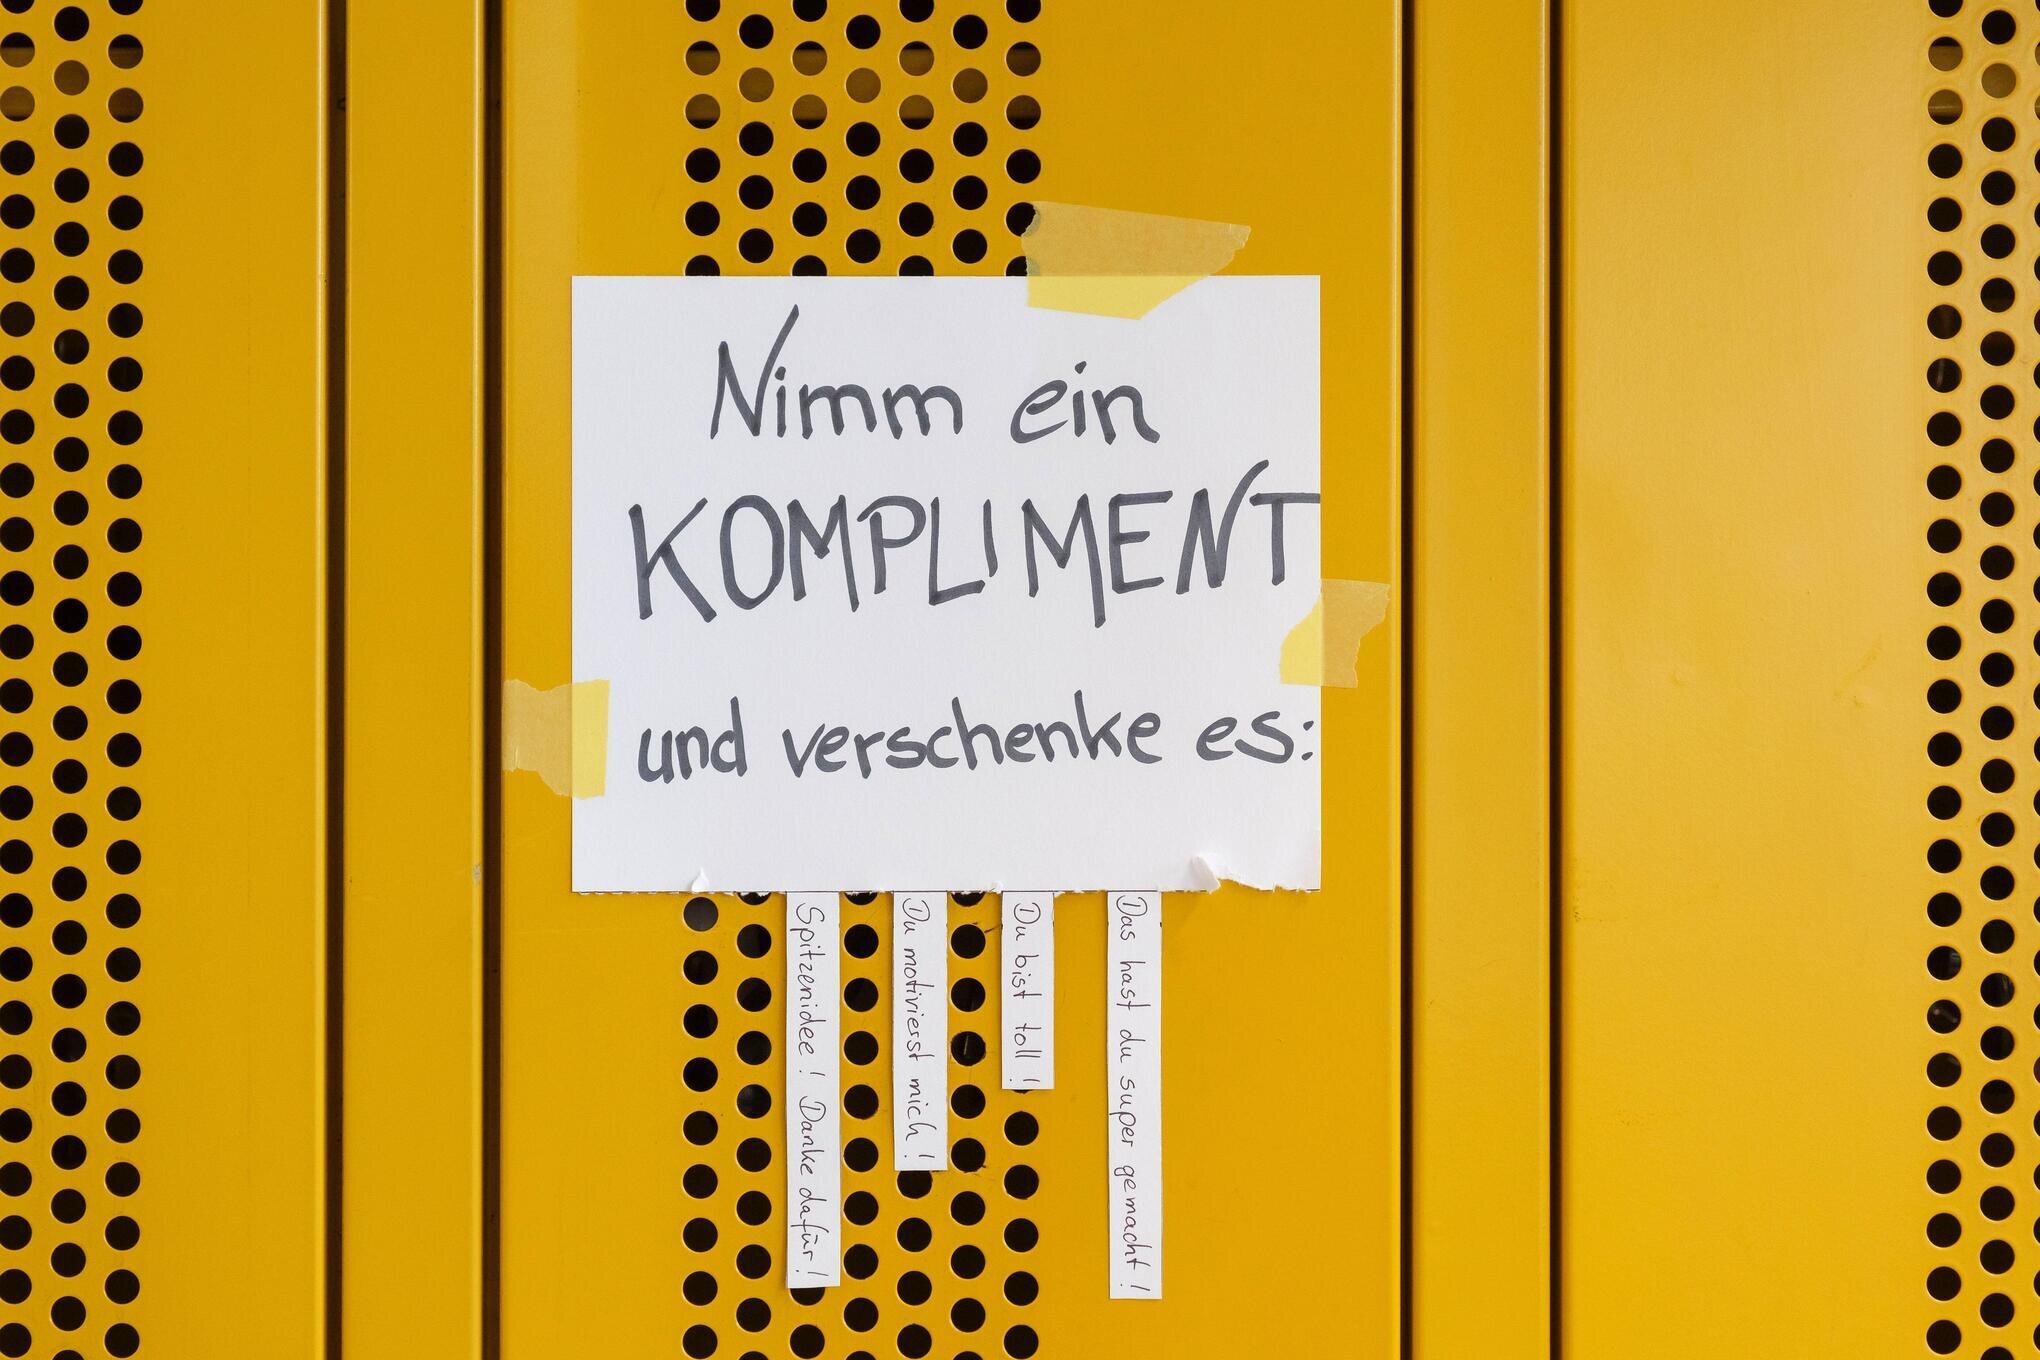 Nimm ein
KOMPLIMENT
und verschenke es:
Spitzenidee! Danke dafür!
Du motivierst mich!
Du bist toll!
Das hast du super gemacht!